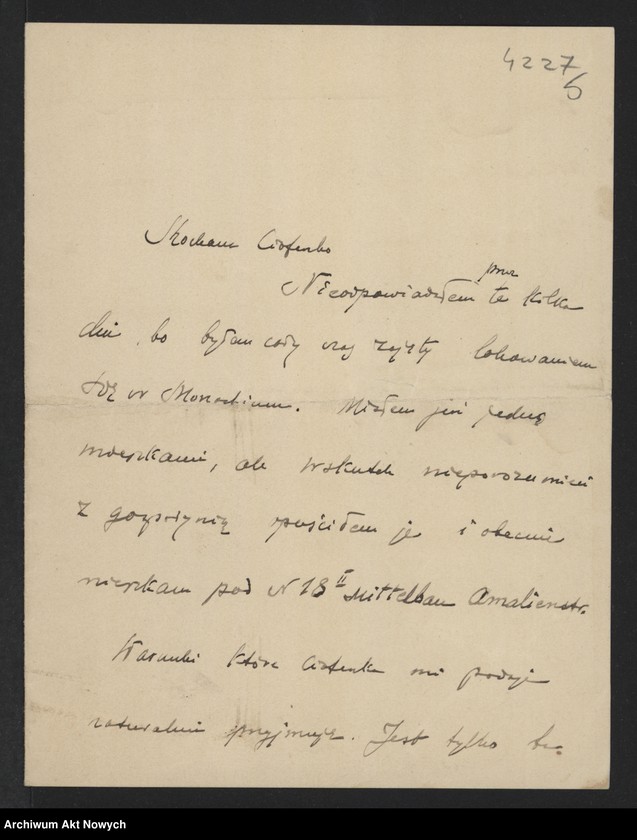 4227
5
Kochana Ciotenko
przez
Nieodpowiadałem te kilka
dni, bo byłem cały czas zajęty lokowaniem
się w Monachium. Miałem już jedno
mieszkanie, ale wskutek nieporozumień
z gospodynią opuściłem je i obecnie
mieszkam pod N 18 II Mittelbau Amalienstr.
Warunki które Ciotenka mi podaje
naturalnie przyjmuję. Jest tylko
Archiwum Akt Nowych